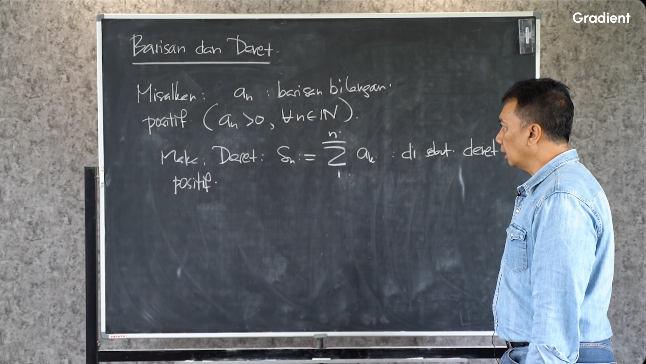 Gradient
Barisan dan Deret.
Misalkan: aₙ : barisan bilangan.
positif (aₙ > 0, ∀n∈ℕ).
n
Maka, Deret: Sₙ := Σ aₖ : di sebut deret
1
positif.